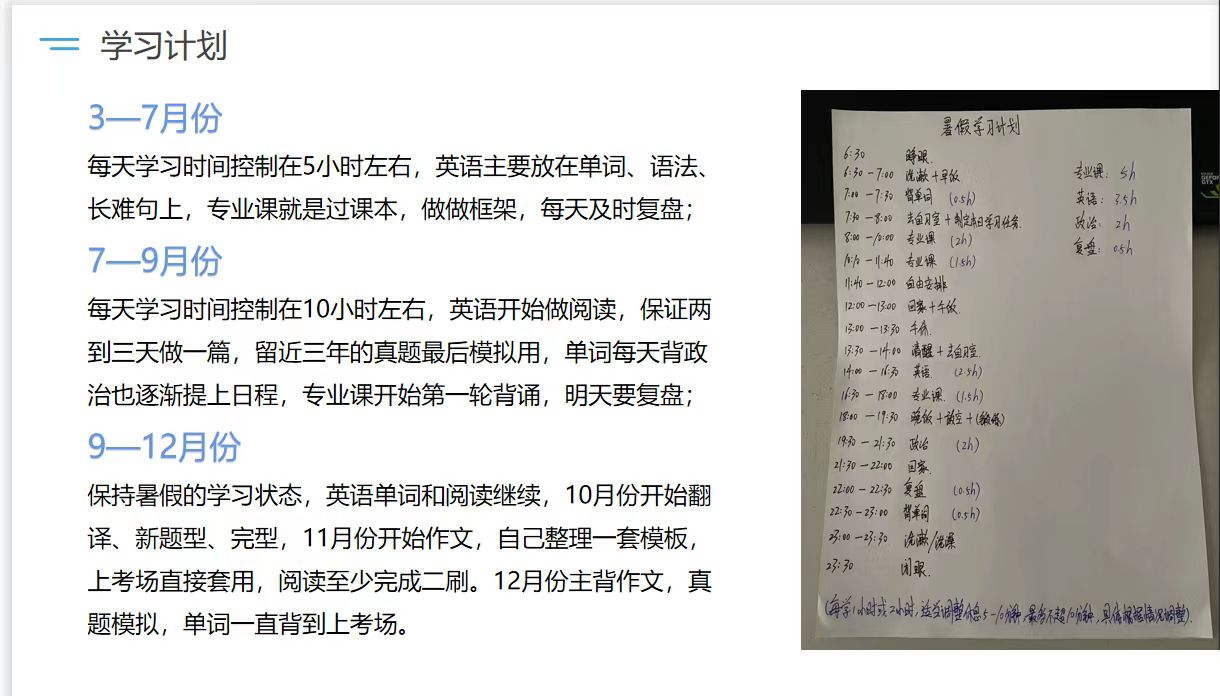 学习计划
3—7月份
每天学习时间控制在5小时左右，英语主要放在单词、语法、
长难句上，专业课就是过课本，做做框架，每天及时复盘；
7—9月份
每天学习时间控制在10小时左右，英语开始做阅读，保证两
到三天做一篇，留近三年的真题最后模拟用，单词每天背政
治也逐渐提上日程，专业课开始第一轮背诵，明天要复盘；
9—12月份
保持暑假的学习状态，英语单词和阅读继续，10月份开始翻
译、新题型、完型，11月份开始作文，自己整理一套模板，
上考场直接套用，阅读至少完成二刷。12月份主背作文，真
题模拟，单词一直背到上考场。
暑假学习计划
6:30 睁眼.
6:30 — 7:00 洗漱 + 早饭
7:00 — 7:30 背单词 (0.5h)
7:30 — 8:00 去自习室 + 制定本日学习任务.
8:00 — 10:00 专业课 (2h)
10:10 — 11:40 专业课 (1.5h)
11:40 — 12:00 自由安排
12:00 — 13:00 回家 + 午饭.
13:00 — 13:30 午休.
13:30 — 14:00 清醒 + 去自习室.
14:00 — 16:30 英语. (2.5h)
16:30 — 18:00 专业课. (1.5h)
18:00 — 19:30 晚饭 + 放空 + (锻炼)
19:30 — 21:30 政治 (2h)
21:30 — 22:00 回家.
22:00 — 22:30 复盘 (0.5h)
22:30 — 23:00 背单词 (0.5h)
23:00 — 23:30 洗漱/洗澡
23:30 闭眼.
(每学1小时或2小时,适当调整休息5-10分钟,最多不超10分钟,具体根据情况调整).
专业课: 5h
英语: 3.5h
政治: 2h
复盘: 0.5h
GEFOR
GTX